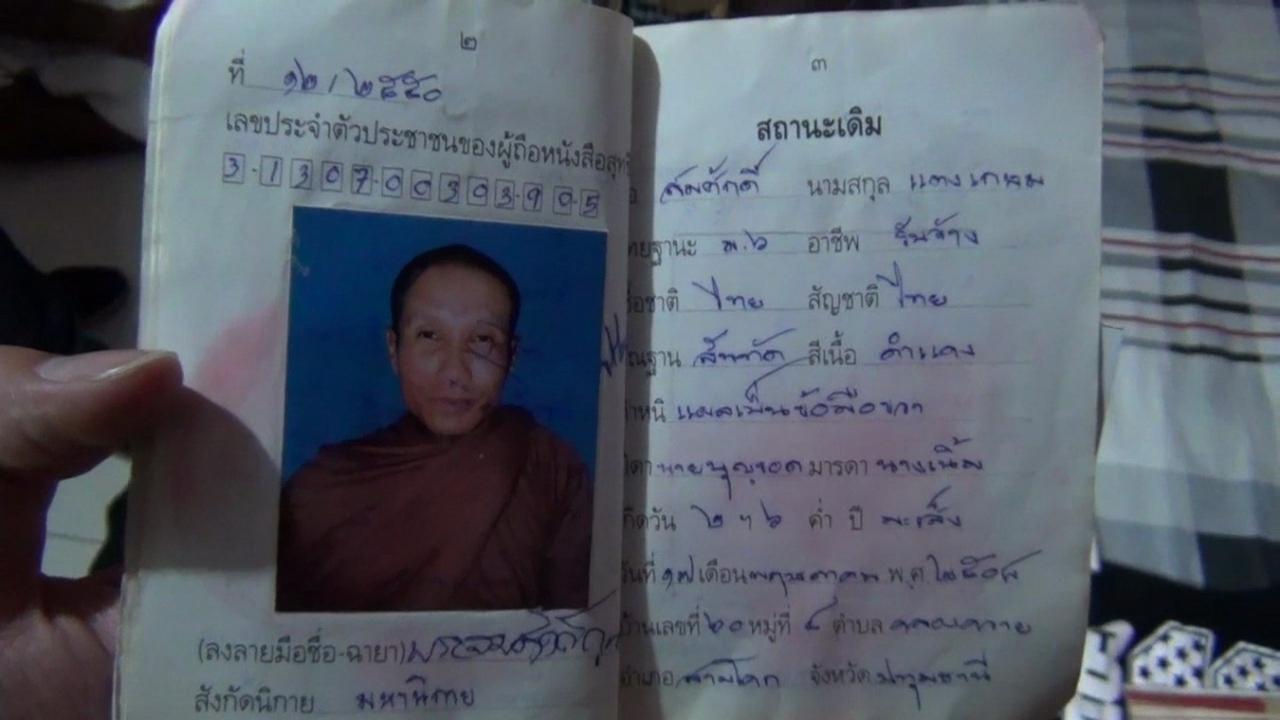 ๒
ที่ ๑๒/๒๕๕๐
เลขประจำตัวประชาชนของผู้ถือหนังสือสุทธิ
3-1307-00303-90-5
(ลงลายมือชื่อ-ฉายา)
สังกัดนิกาย มหานิกาย
๓
สถานะเดิม
สมศักดิ์ นามสกุล
ม.๖ อาชีพ รับจ้าง
ไทย สัญชาติ ไทย
สันทัด สีเนื้อ ดำแดง
แผลเป็นข้อมือขวา
นายบุญรอด มารดา นางเนิ้ม
๒ ฯ ๖ ค่ำ ปี มะเส็ง
วันที่ ๑๗ เดือน พฤษภาคม พ.ศ. ๒๕๐๘
บ้านเลขที่ ๒๐ หมู่ที่ ๔ ตำบล คลองควาย
อำเภอ สามโคก จังหวัด ปทุมธานี